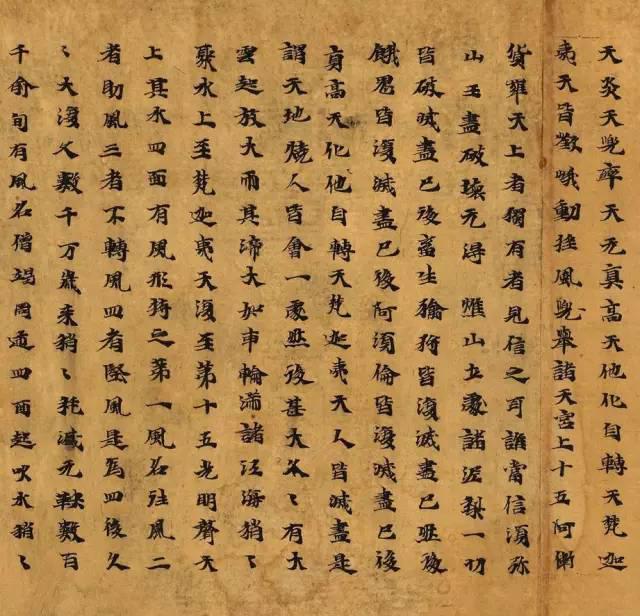 天炎天兜率天无真高天他化自轉天梵迦
夷天皆欻哦動挂風兜舉諸天宮上十五阿衛
貨羅天上者獨有者見信之耳誰當信須弥
山王盡破壞无得惟山立處諸泥梨一切
皆破滅盡已後畜生獫狩皆復滅盡已然後
餓鬼皆復滅盡已後阿須倫皆復滅盡已後
貢高天化他自轉天梵迦夷天人皆滅盡是
謂天地燒人皆會一處然後甚大久〻有大
雲起放大雨其渧大如車輪滿諸江海稍〻
聚水上至梵迦夷天復至第十五光明聲天
上其水四面有風形持之第一風名住風二
者助風三者不轉風四者堅風是爲四後久
〻大復久數千万歲來稍〻耗減无鞅數百
千俞旬有風名僧竭罔道四面起吹水稍〻